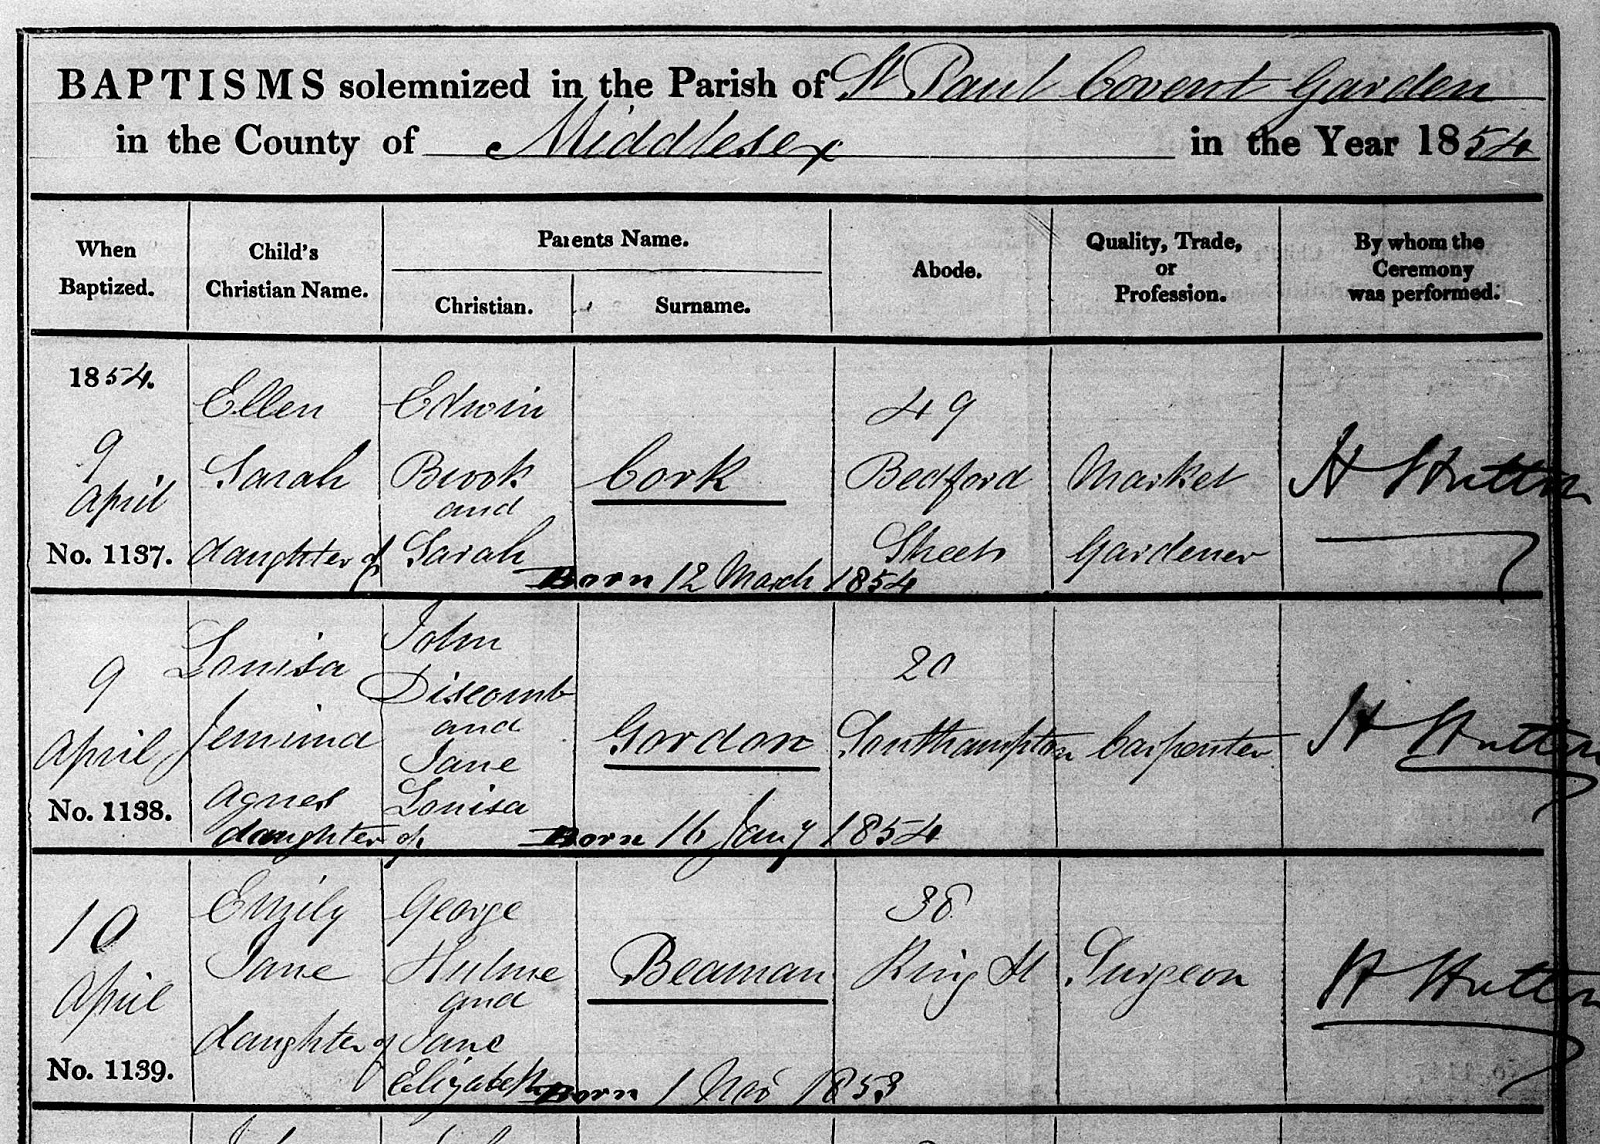 BAPTISMS solemnized in the Parish of St Paul Covent Garden
in the County of Middlesex in the Year 1854
When Baptized.
Child's Christian Name.
Parents Name.
Christian.
Surname.
Abode.
Quality, Trade, or Profession.
By whom the Ceremony was performed.
1854.
9
April
No. 1137.
Ellen
Sarah
daughter of
Edwin
Brook
and
Sarah
Cork
49
Bedford
Street
Market
Gardener
H Hutton
Born 12 March 1854
9
April
No. 1138.
Louisa
Jemima
Agnes
daughter of
John
Discomb
and
Jane
Louisa
Gordon
20
Southampton
Carpenter
H Hutton
Born 16 Jany 1854
10
April
No. 1139.
Emily
Jane
daughter of
George
Hulme
and
Jane
Elizabeth
Beaman
38
King St
Surgeon
H Hutton
Born 1 Nov 1853